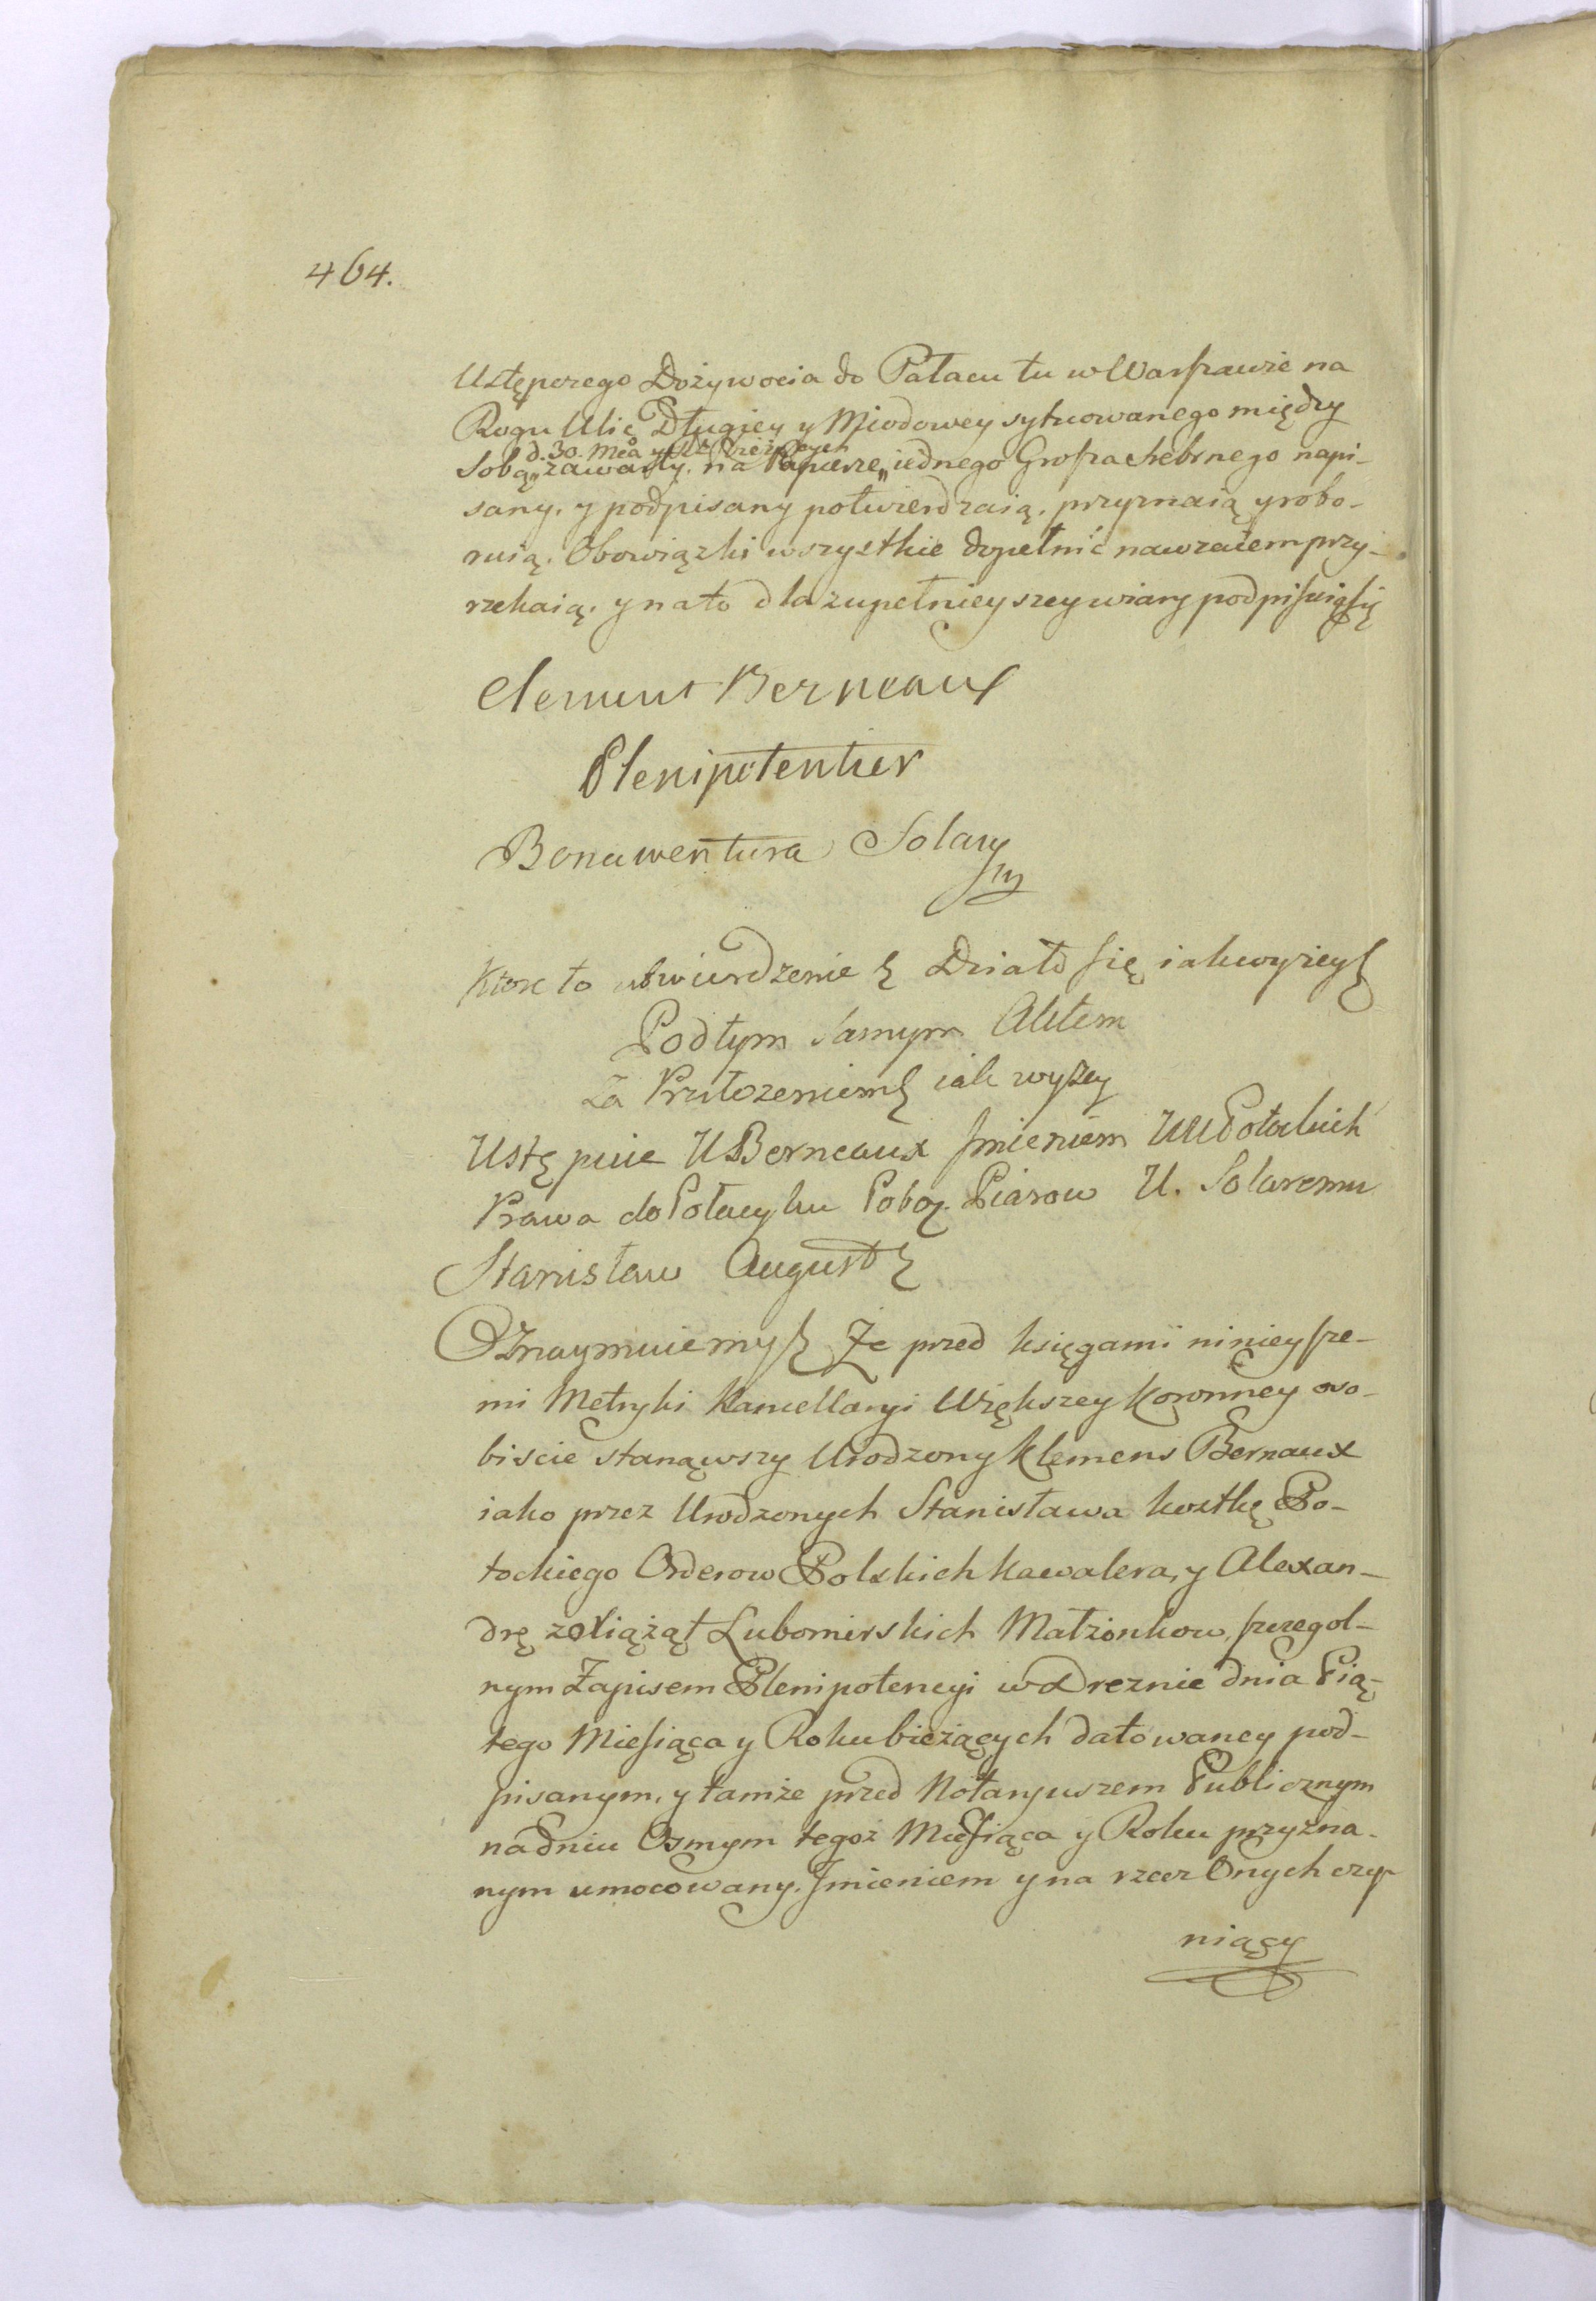 464.
Ustępczego Dożywocia do Pałacu tu w Warszawie na
Rogu Ulic Długiey y Miodowey sytuowanego między
d. 30. Mca y Rku bieżących
Sobą „ zawarty. na Papierze „ iednego Grosza srebrnego napi-
sany. y podpisany potwierdzaią. przyznaią y robo-
ruią. Obowiązki wszystkie dopełnić nawzaiem przy-
rzekaią. y na to dla zupełnieyszey wiary podpisuią się
Clement Berneaux
Plenipotentier
Bonawentura Solary
mp
Ktore to utwierdzenie & Działo się iak wyżey &
Pod tym samym Aktem
Za Przełożeniem & iak wyżey
Ustępuie U Berneaux Imieniem UU Potockich
Prawa do Pałacyku Poboż. Piarow U. Solaremu
Stanisław August &
Oznaymuiemy & Że przed księgami ninieysze-
mi Metryki Kancellaryi Większey Koronney oso-
biscie stanąwszy Urodzony Klemens Bernaux
iako przez Urodzonych Stanisława Kostkę Po-
tockiego Orderow Polskich Kawalera, y Alexan-
drę z Xiążąt Lubomirskich Małżonkow, szczegol-
nym Zapisem Plenipotencyi w Dreznie dnia Pią-
tego Miesiąca y Roku bieżących datowaney pod-
pisanym, y tamże przed Notaryuszem Publicznym
na dniu Osmym tegoż Miesiąca y Roku przyzna-
nym umocowany. Imieniem y na rzecz Onych czy-
niący